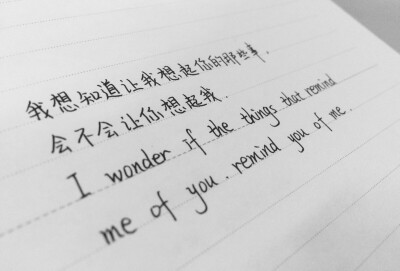 我想知道让我想起你的那些事.
会不会让你想起我.
I wonder if the things that remind
me of you. remind you of me.